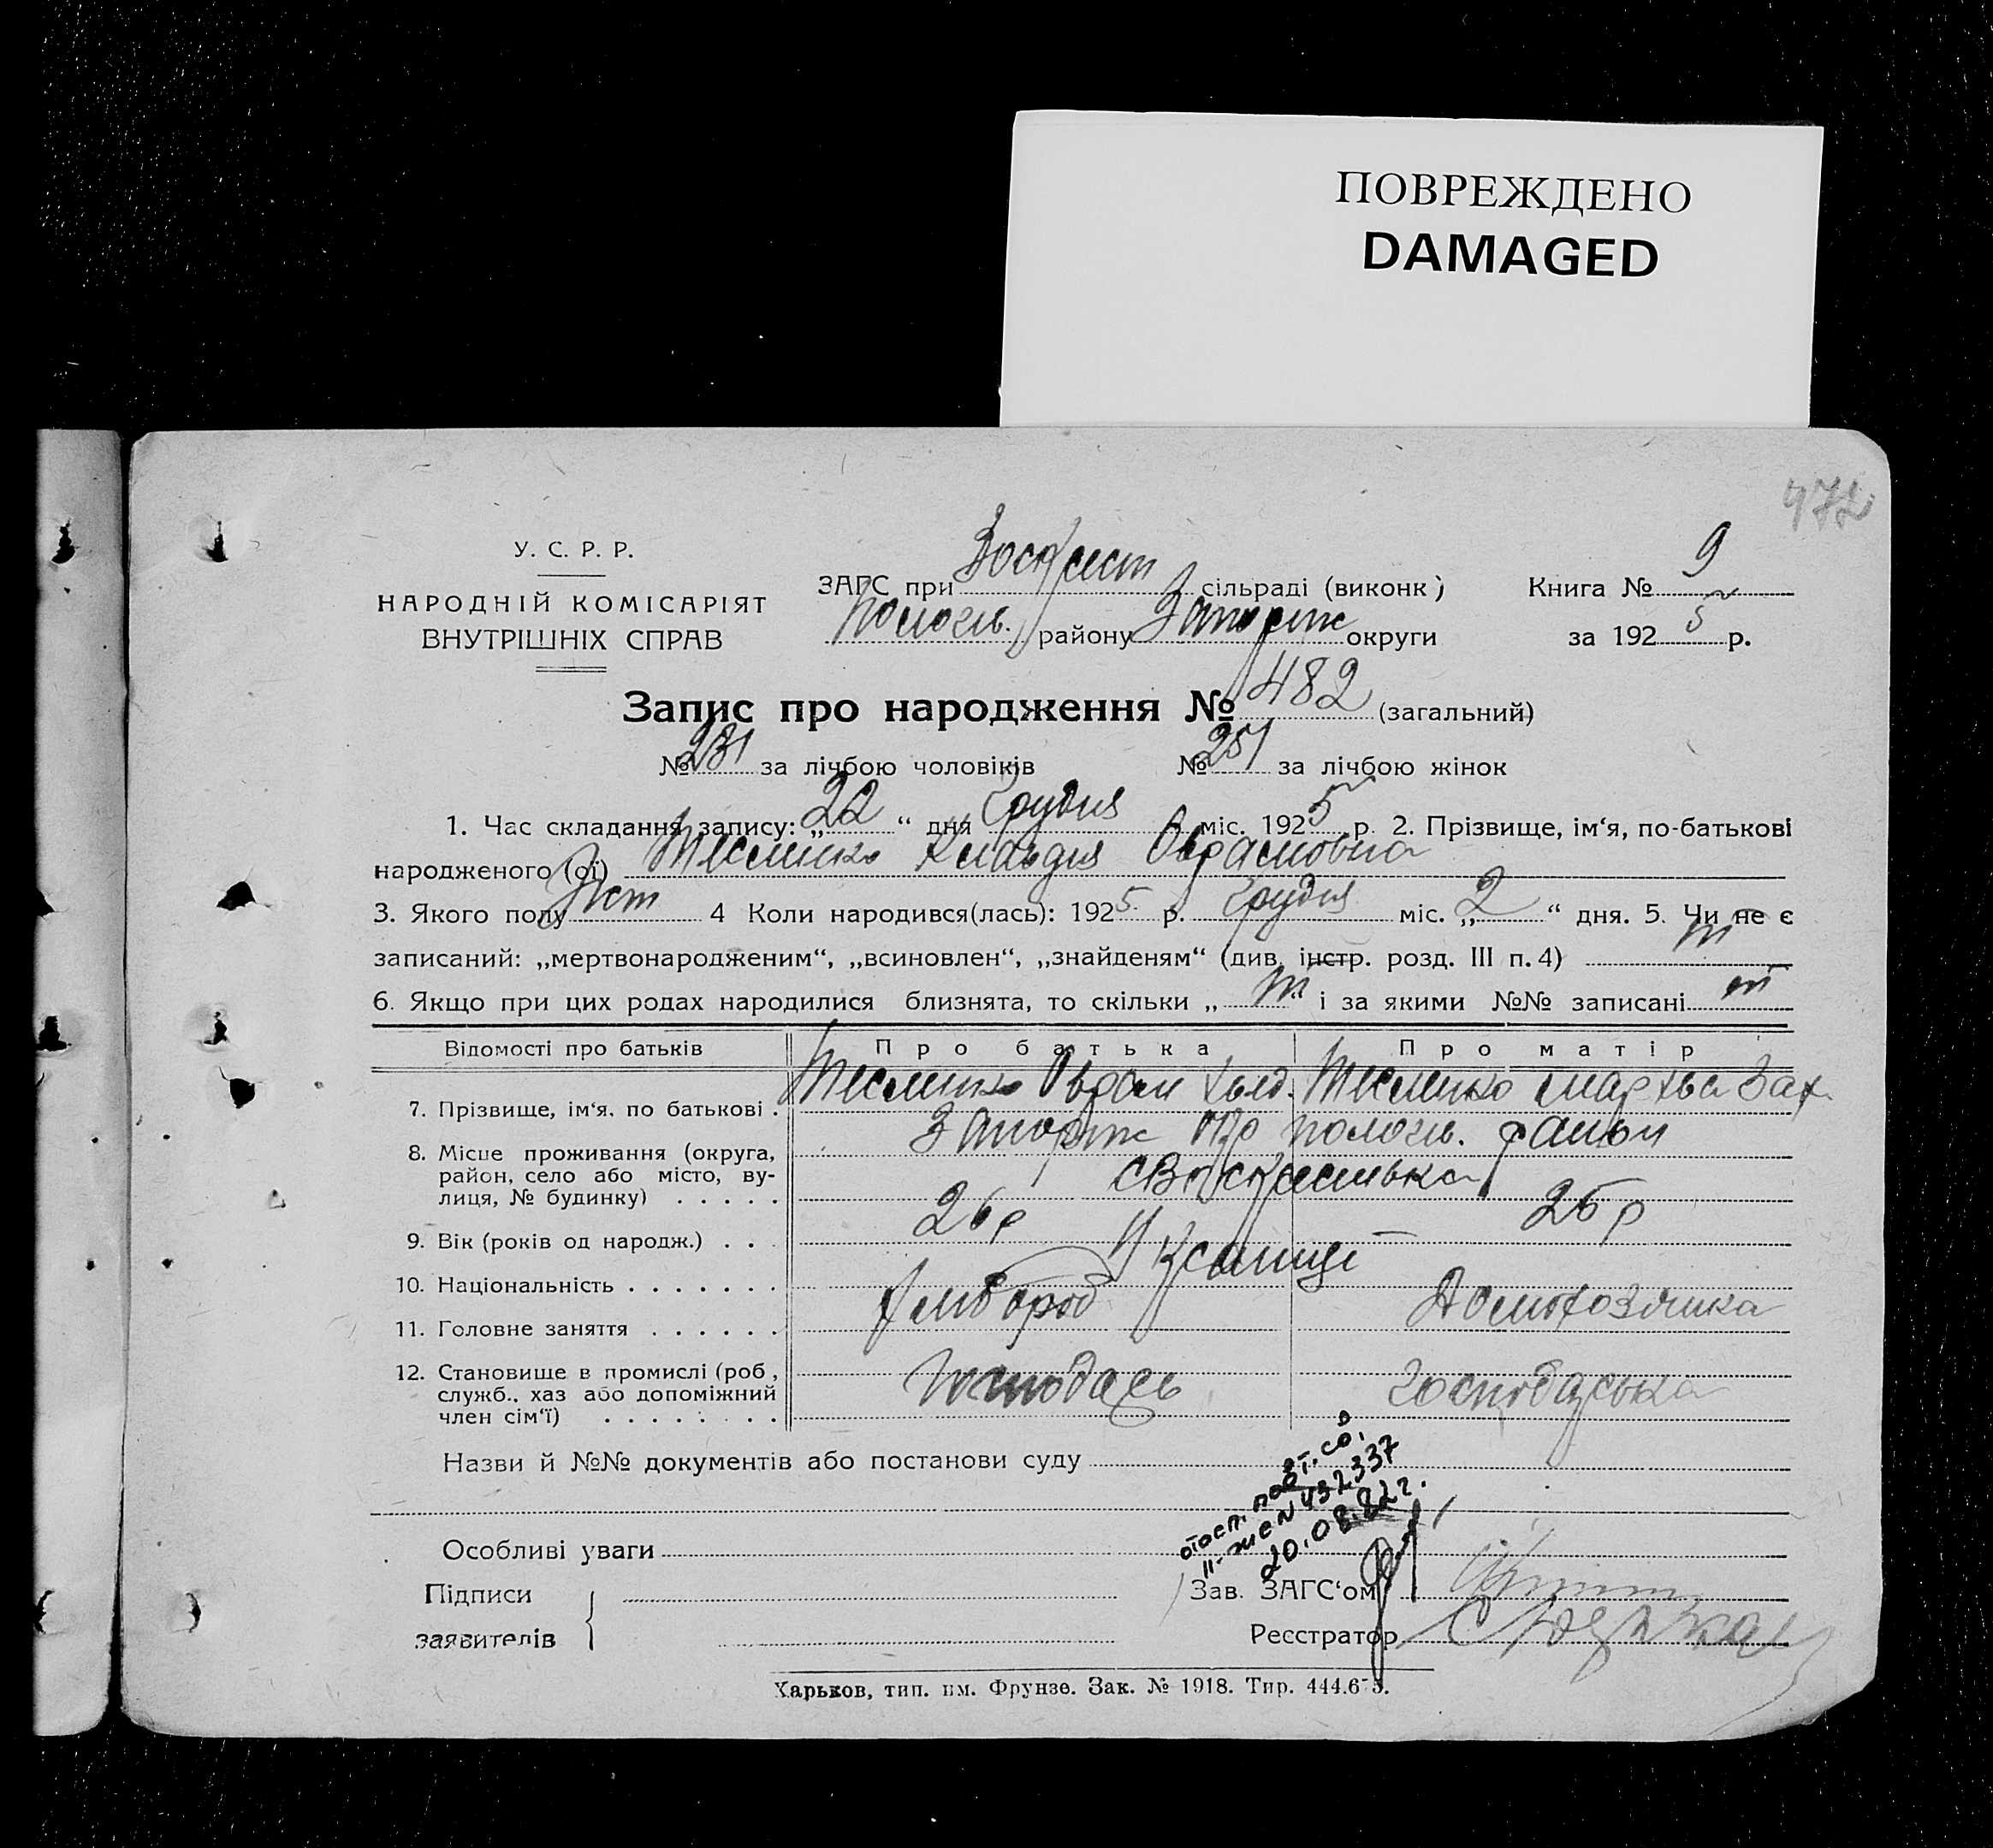 ПОВРЕЖДЕНО
DAMAGED
972
У. С. Р. Р.
НАРОДНІЙ КОМІСАРІЯТ
ВНУТРІШНІХ СПРАВ
ЗАГС при Воскресен сільраді (виконк)
Пологів. району Запоріж округи
Книга № 9
за 1925 р.
Запис про народження № 482 (загальний)
№ 231 за лічбою чоловіків № 251 за лічбою жінок
1. Час складання запису: „22“ дня Грудня міс. 1925 р. 2. Прізвище, ім‘я, по-батькові
народженого (ої) Тесленко Клавдія Оврамовна
3. Якого полу Жін 4 Коли народився(лась): 1925 р. Грудня міс. „2“ дня. 5. Чи не є
записаний: „мертвонародженим“, „всиновлен“, „знайденям“ (див. інстр. розд. III п. 4)
6. Якщо при цих родах народилися близнята, то скільки „ “ і за якими №№ записані
Відомості про батьків Про батька Про матір
7. Прізвище, ім‘я, по батькові . Тесленко Оврам Тесленко Мархва Зах.
8. Місце проживання (округа, Запоріж окр Пологів. район
район, село або місто, ву- с Воскресенька
лиця, № будинку) . . . . .
9. Вік (років од народж.) . . . 26 р 25 р
10. Національність . . . . . . . Українці
11. Головне заняття . . . . . . Хлібороб Домохозяйка
12. Становище в промислі (роб., Господарь Господарька
служб., хаз або допоміжний
член сім‘ї) . . . . . . . .
Назви й №№ документів або постанови суду
повт. св.
II-ЖС N 432337
20.08.82г.
Особливі уваги
Підписи
заявителів
Зав. ЗАГС‘ом
Реєстратор
Харьков, тип. им. Фрунзе. Зак. № 1918. Тир. 444.675.